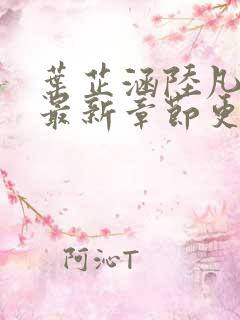 葉芷涵陸凡
最新章節更
阿沁T